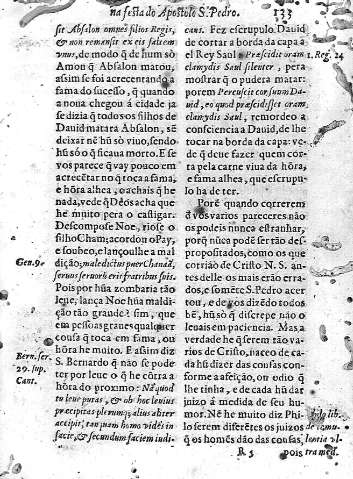 na festa do Apostolo S. Pedro. 133
sit Absalon omnes filios Regis,
& non remansit ex eis saltem
vnus, de modo q̃ de hum só
Amon q̃ Absalon matou,
assim se foi acrecentando a
fama do sucesso, q̃ quando
a noua chegou á cidade já
se dizia q̃ todos os filhos de
Dauid matara Absalon, sẽ
deixar nẽ hũ só viuo, sendo
hũ só o q̃ ficaua morto. E se
vos parece q̃ vay pouco em
acrecẽtar no q̃ toca a fama,
e hõra alhea, o achais q̃ he
nada, vede q̃ Deos acha que
he muito pera o castigar.
Descompose Noe, riose o
filho Cham; acordou o Pay,
e soubeo, e lançoulhe a mal
dição; maledictus puer Chanaã,
seruus seruorũ erit fratribus suis.
Pois por hũa zombaria tão
leue, lança Noe hũa maldi
ção tão grande? sim, que
em pessoas graues qualquer
cousa q̃ toca em fama, ou
hõra he muito. E assim diz
S. Bernardo q̃ não se pode
ter por leue o q̃ he cõtra a
hõra do proximo: Nã quod
tu leue putas, & ob hoc leuius
præcipitas plerumq; alius aliter
accipit, tanquam homo vidẽs in
facie, & secundum faciem iudi-
Gen. 9.
Bern. ser.
29. sup.
Cant.
cans. Fez escrupulo Dauid
de cortar a borda da capa á
el Rey Saul Præscidit oram
clamydis Saul silenter, pera
mostrar q̃ o pudera matar:
porem Percussit cor suum Da-
uid, eo quod præscidisset oram
clamydis Saul, remordeo a
consciencia a Dauid, de lhe
tocar na borda da capa: ve-
de q̃ deue fazer quem cor-
ta pela carne viua da hõra,
e fama alhea, que escrupu-
lo ha de ter.
Porẽ quando correrem
q̃ vos varios pareceres não
os podeis nem estranhar,
porq̃ nũca podẽ ser tão des-
propositados, como os que
corrião de Christo N. S. an-
tes delle os mais erão errados,
e somẽte S. Pedro acer
tou, e de gos dizẽdo todos
bẽ, hũ só q̃ discrepe não o
leuais em paciencia. Mas a
verdade he q̃ serem tão va-
rios de Cristo, naceo de ca-
da hũ dizer das cousas con-
forme a afeição, ou odio q̃
lhe tinha, e de cada hũ dar
juizo á medida de seu hu-
mor. Nẽ he muito diz Phi-
lo serem diferẽtes os juizos
q̃ os homẽs dão das cousas,
1. Reg. 24
R 5
pois